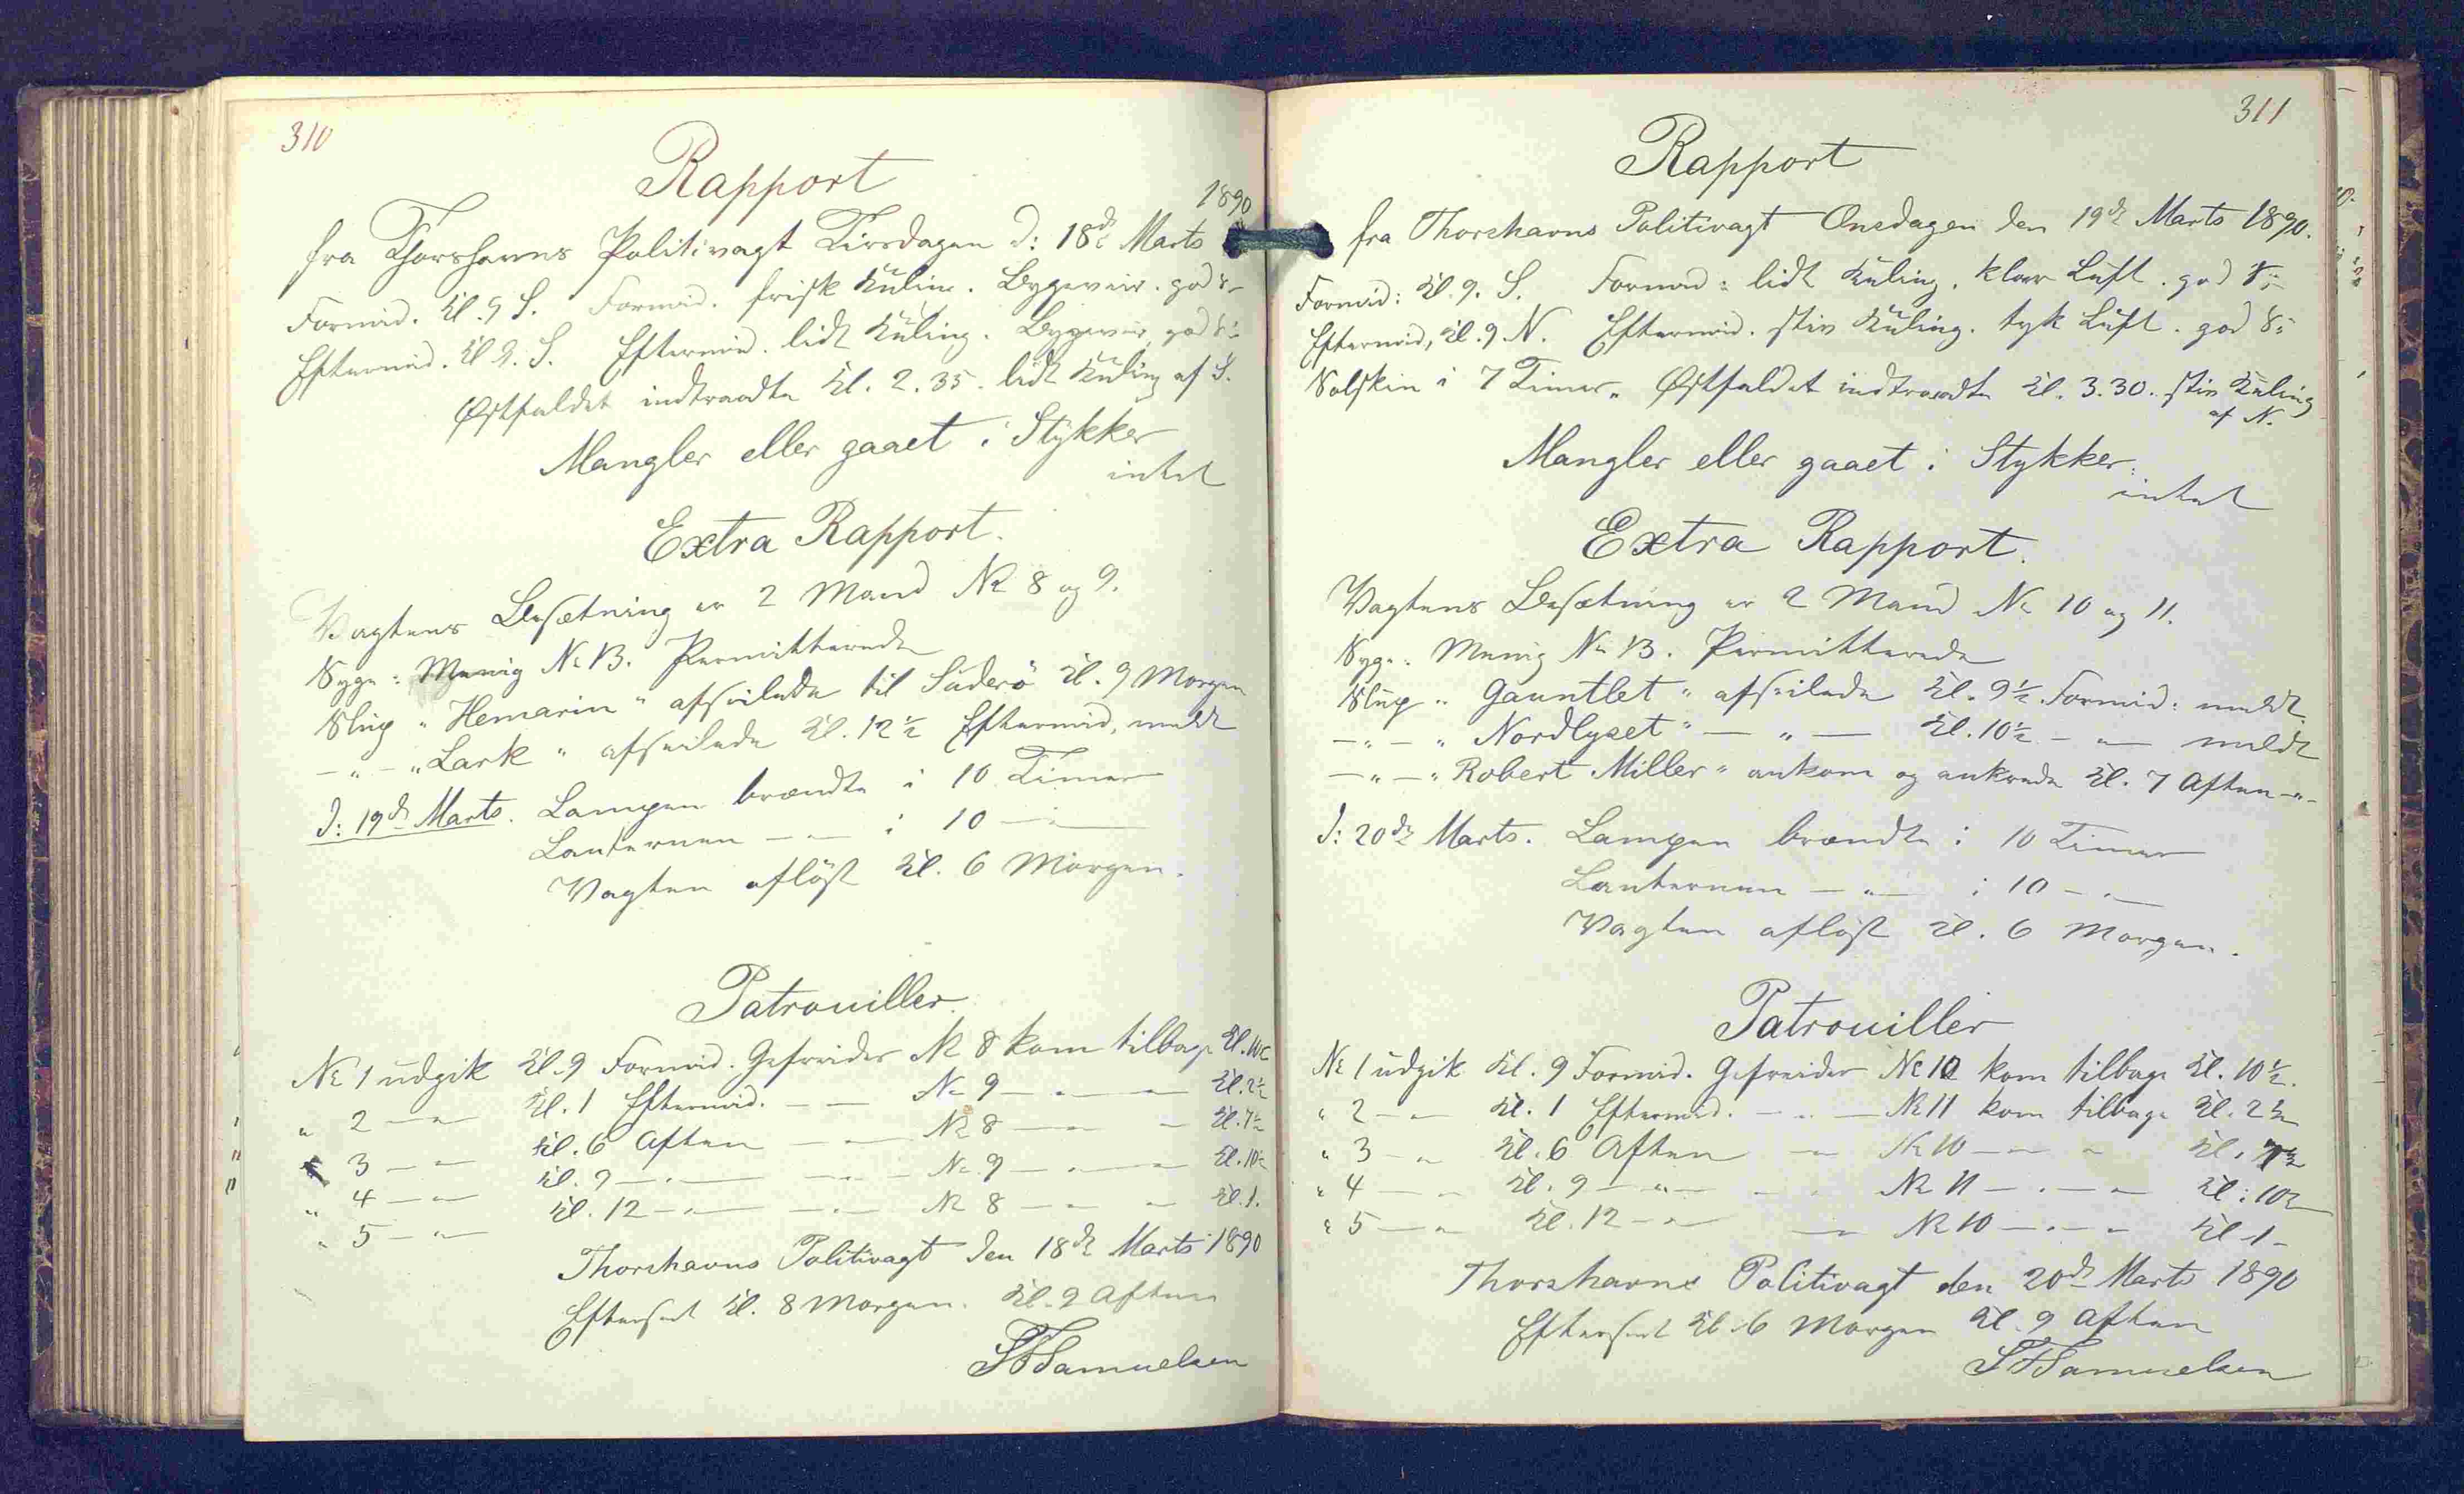 310
Rapport
1890
fra Thorshavns Politivagt Tirsdagen d: 18de Marts
Formid. Kl. 9 S. Formid. frisk Kuling. Bygeveir. god S-
Eftermid. Kl. 9. S. Eftermid. lidt Kuling. Bygeveir, god S:-
Østfaldet indtraadte Kl. 2.35. lidt Kuling af S.
Mangler eller gaaet i Stykker
intet
Extra Rapport.
Vagtens Besætning er 2 Mand No 8 og 9.
Syge: Menig No 13. Permitterede
Slup "Hemarin" afseilede til Suderö Kl. 9 Morgen
-"- "Lark" afseilede Kl. 12½ Eftermid, meldt
D: 19de Marts. Lampen brændte i 10 Timer
Lanternen -"- i 10 -"-
Vagten aflöst Kl. 6 Morgen.
Patrouiller.
No 1 udgik Kl. 9 Formid. Gefreider No 8 kom tilbage Kl. 10½
" 2 -"- Kl. 1 Eftermid. -"- No 9 -"- -"- Kl. 2½
" 3 -"- Kl. 6 Aften -"- No 8 -"- -"- Kl. 7½
" 4 -"- Kl. 9 -"- -"- No 9 -"- -"- Kl. 10½
" 5 -"- Kl. 12 -"- -"- No 8 -"- -"- Kl. 1.
Thorshavns Politivagt den 18de Marts 1890
Efterseet Kl. 8 Morgen. Kl. 9 Aften
Samuelsen
311
Rapport
fra Thorshavns Politivagt Onsdagen den 19de Marts 1890.
Formid: Kl. 9. S. Formid: lidt Kuling. klar Luft. god S:-
Eftermid, Kl. 9 N. Eftermid. stiv Kuling. tyk Luft. god S:-
Solskin i 7 Timer. Østfaldet indtraadte Kl. 3.30. stiv Kuling
af N.
Mangler eller gaaet i Stykker.
intet
Extra Rapport.
Vagtens Besætning er 2 Mand No 10 og 11.
Syge: Menig No 13. Permitterede
Slup "Gauntlet" afseilede Kl. 9½ Formid: meldt.
-"- "Nordlyset" -"- Kl. 10½ -"- meldt
-"- "Robert Miller" ankom og ankrede Kl. 7 Aften -"-
D: 20de Marts. Lampen brændte i 10 Timer
Lanternen -"- i 10 -"-
Vagten aflöst Kl. 6 Morgen.
Patrouiller
No 1 udgik Kl. 9 Formid. Gefreider No 10 kom tilbage Kl. 10½.
" 2 -"- Kl. 1 Eftermid. -"- No 11 kom tilbage Kl. 2½
" 3 -"- Kl. 6 Aften -"- No 10 -"- -"- Kl. 7½
" 4 -"- Kl. 9 -"- -"- No 11 -"- -"- Kl: 10½
" 5 -"- Kl. 12 -"- -"- No 10 -"- -"- Kl 1-
Thorshavns Politivagt den 20de Marts 1890
Efterseet Kl 6 Morgen Kl. 9 Aften
Samuelsen